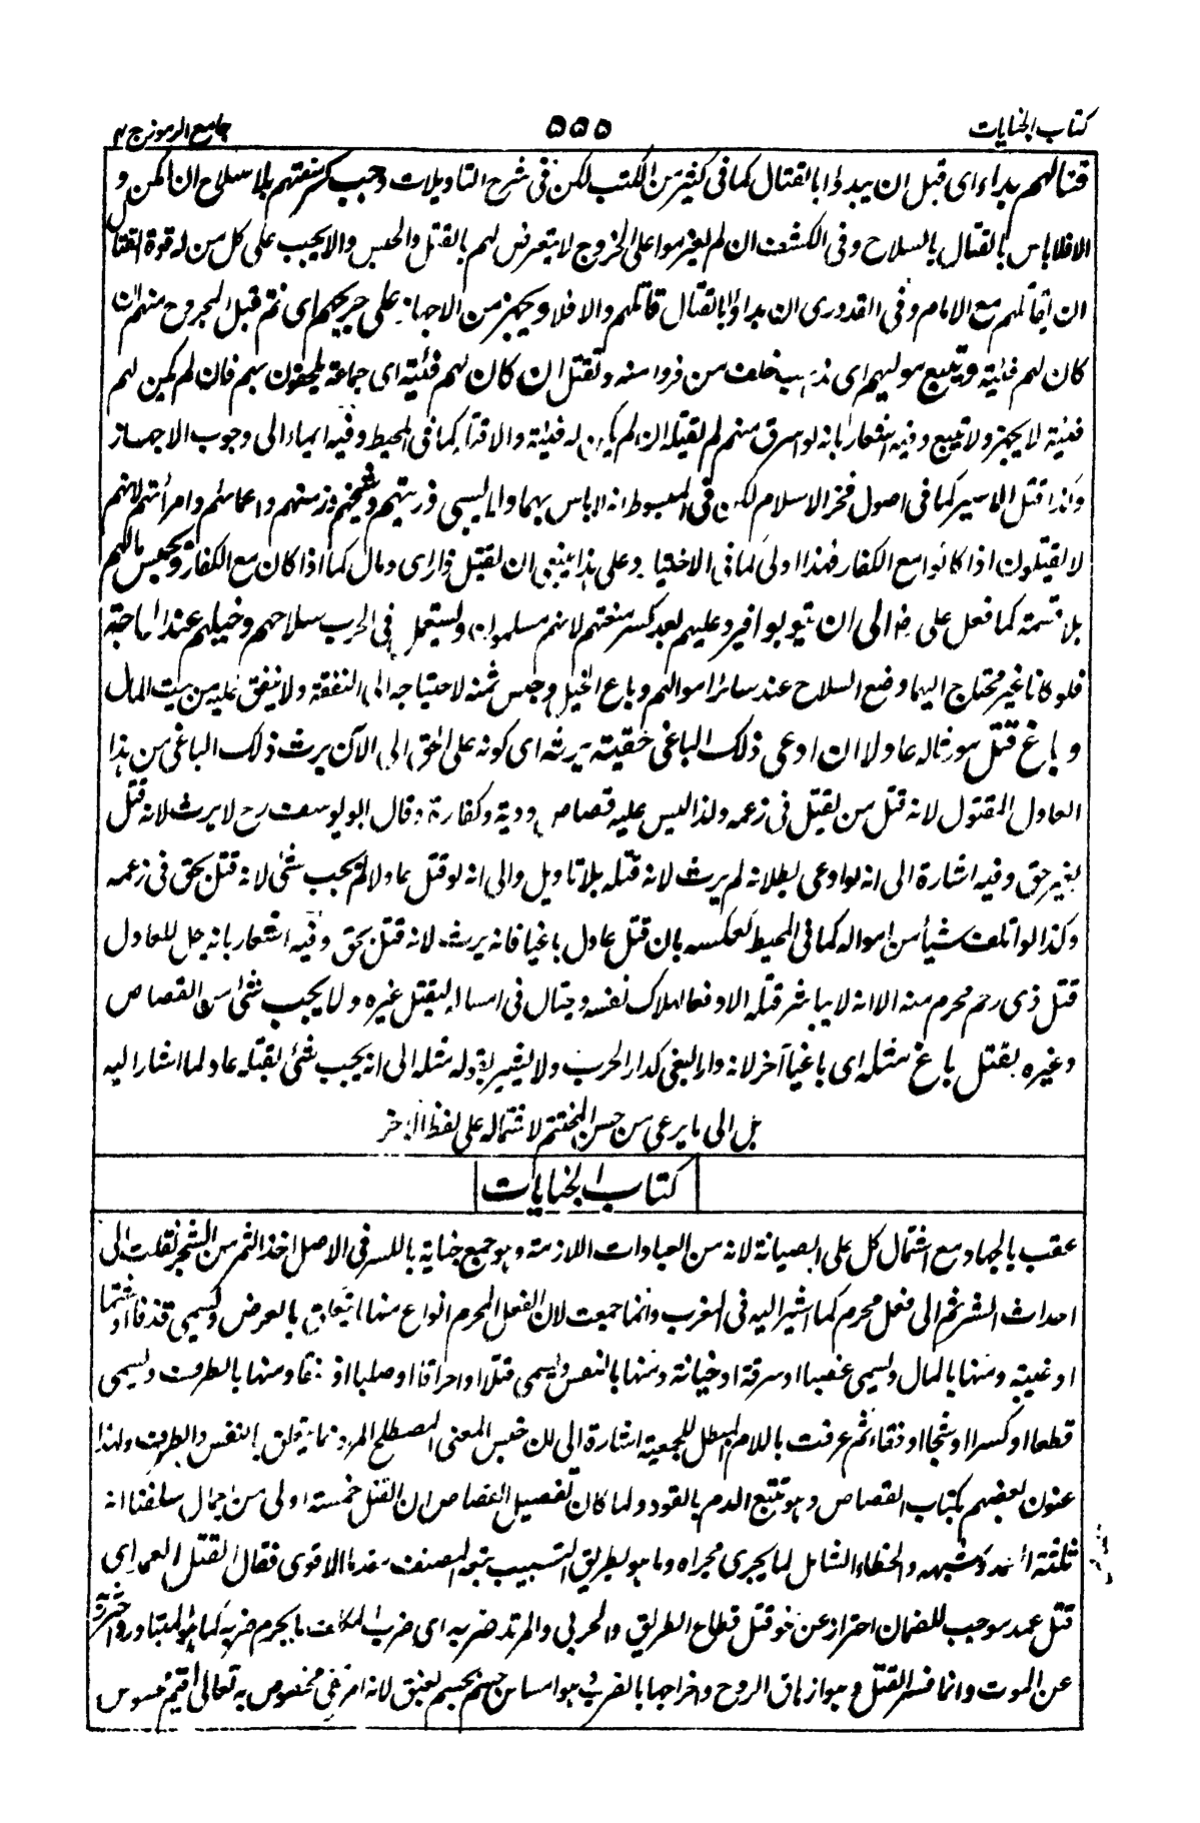 كتاب الجنايات
٥٥٥
جامع الرموز ج ٢
قتالهم بداء اى قبل ان يبدؤا بالقتال كما فى كثير من الكتب لكن فى شرح التاويلات وجب كسر منعتهم بلا سلاح ان امكن و
الا فلا باس بالقتال بالسلاح وفى الكشف ان لم يعزموا على الخروج لا يتعرض لهم بالقتل والحبس والا يجب على كل من له قوة القتال
ان يقاتلهم مع الامام وفى القدورى ان بداوا بالقتال قاتلهم والا فلا ويجهز من الاجهاز على جريحهم اى تم قتل المجروح منهم ان
كان لهم فئية ويتبع موليهم اى ذهب خلف من فروا منه وتقتل ان كان لهم فئية اى جماعة يلحقون بهم فان لم يكن لهم
فئية لا يجهز ولا يتبع وفيه اشعار بانه لو اسرق منهم لم يقتله ان لم يكن له فئية والا قتل كما فى المحيط وفيه ايماء الى وجوب الاجهاز
وكذا قتل الاسير كما فى اصول فخر الاسلام لكن فى المبسوط انه لا باس بهما ولا يسبى ذريتهم وشيخهم وزمنهم واعمائهم وامرأتهم لانهم
لا يقتلون اذا كانوا مع الكفار فهذا اولى كما فى الاختيار وعلى هذا ينبغى ان يقتل ذا راى ومال كما اذا كان مع الكفار ويحبس مالهم
بلا قسمة كما فعل على رض الى ان يتوبوا فيرد عليهم بعد كسر منعتهم لانهم مسلموان ويستعمل فى الحرب سلاحهم وخيلهم عند الحاجة
فلو كانا غير محتاج اليهما وضع السلاح عند سائر اموالهم وباع الخيل وحبس ثمنه لاحتياجه الى النفقة ولا ينفق عليه من بيت المال
وباغ قتل مورثاله عادلا ان ادعى ذلك الباغى حقيته يرثه اى كونه على الحق الى الآن يرث ذلك الباغى من هذا
العادل المقتول لانه قتل من يقتل فى زعمه ولذا ليس عليه قصاص ودية وكفارة وقال ابو يوسف رح لا يرث لانه قتل
بغير حق وفيه اشارة الى انه لو ادعى بطلانه لم يرث لانه قتله بلا تاويل والى انه لو قتل عادلا لم يجب شئ لانه قتل بحق فى زعمه
وكذا لو اتلف شيأ من امواله كما فى المحيط كعكسه بان قتل عادل باغيا فانه يرث لانه قتل بحق وفيه اشعار بانه حل للعادل
قتل ذى رحم محرم منه الا انه لا يباشر قتله الا دفعا لهلاك نفسه ويحتال فى امساكه ليقتل غيره ولا يجب شئ من القصاص
وغيره بقتل باغ مثله اى باغيا آخر لانه دار البغى كدار الحرب ولا يشير بقوله مثله الى انه يجب شئ بقتله عادلا لما اشار اليه
بل الى ما يرعى من حسن المختتم لاشتماله على لفظ الآخر
كتاب الجنايات
عقب بالجهاد مع اشتمال كل على الصيانة لانه من العبادات اللازمة وهو جمع جناية بالكسر فى الاصل اخذ الثمر من الشجر نقلت الى
احداث الشر ثم الى فعل محرم كما اشير اليه فى المغرب وانما جمعت لان الفعل المحرم انواع منها ما يتعلق بالعرض ويسمى قذفا او شتما
او غيبة ومنها بالمال ويسمى غصبا او سرقة او خيانة ومنها بالنفس ويسمى قتلا او احراقا او صلبا او خنقا ومنها بالطرف ويسمى
قطعا او كسرا او شجا او فقاء ثم عرفت باللام المبطل للجمعية اشارة الى ان جنس المعنى المصطلح المراد بما يتعلق بالنفس والطرف ولهذا
عنون بعضهم بكتاب القصاص وهو تتبع الدم بالقود ولما كان تفصيل القصاص ان القتل خمسة اولى من اجمال سلفنا انه
ثلثة العمد وشبهه والخطاء الشامل لما يجرى مجراه وما هو بطريق التسبيب تبعه المصنف مقدما الاقوى فقال القتل العمد اى
قتل عمد موجب للضمان احتراز عن نحو قتل قطاع الطريق والحربى والمرتد ضربه اى ضرب المكلف بالجرم ضربه كما هو المتبادر واحترز به
عن الموت وانما فسر القتل وهو ازهاق الروح واخراجها بالضرب وهو امساس جسم بجسم بعنف لانه امر خفى مخصوص به تعالى اقيم محسوس